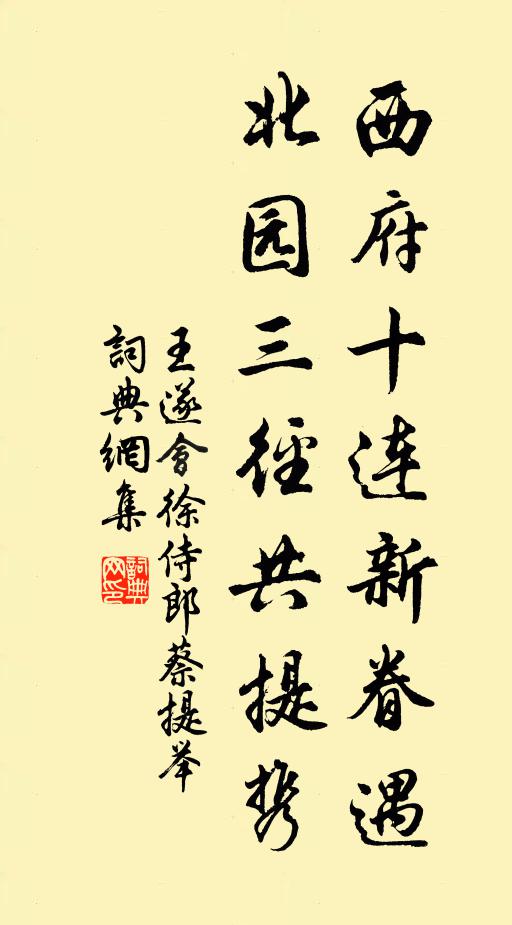 西府十连新眷遇
北园三径共提携
王遂会徐侍郎蔡提举
詞典網集
詞典网印